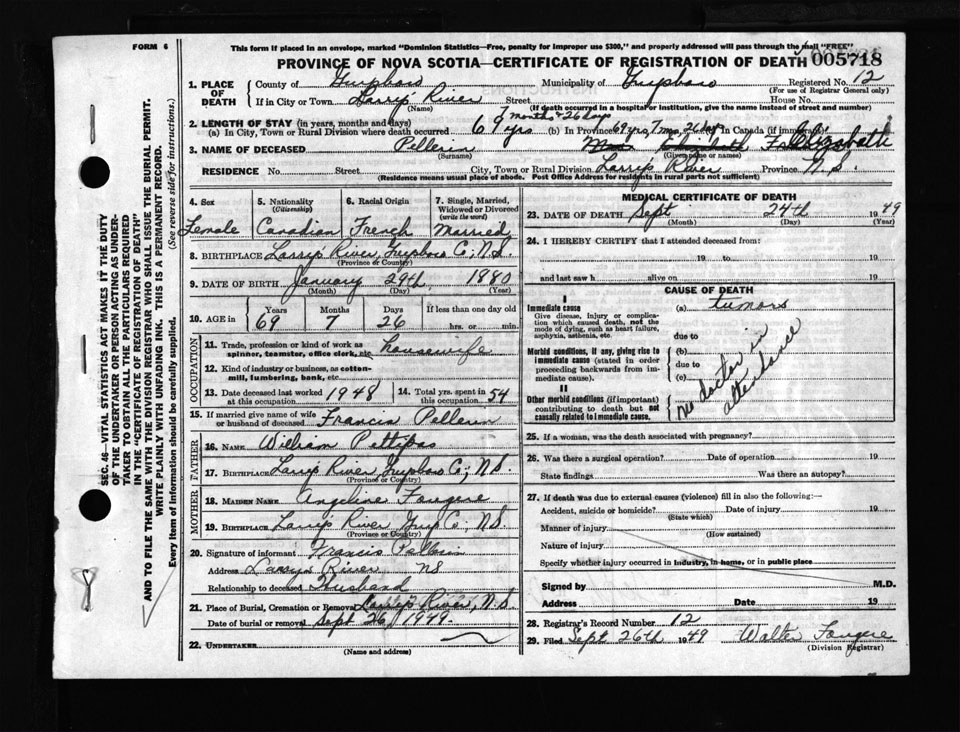 This form if placed in an envelope, marked "Dominion Statistics—Free, penalty for improper use $300," and properly addressed will pass through the mail "FREE"
FORM 6
PROVINCE OF NOVA SCOTIA—CERTIFICATE OF REGISTRATION OF DEATH 005718
1. PLACE OF DEATH County of Guysboro Municipality of Guysboro Registered No. 12
(For use of Registrar General only)
If in City or Town Larry's River Street House No.
(Name) (If death occurryd in a hospital or institution, give the name instead of street and number)
7 months & 26 days
2. LENGTH OF STAY (in years, months and days)
(a) In City, Town or Rural Division where death occurred 69 yrs (b) In Province 69 yrs, 7 mo, 26 days In Canada (if immigrant)
3. NAME OF DECEASED Pellerin Mrs. Elizabeth Elizabeth
(Surname) (Given name or names)
RESIDENCE No. Street City, Town or Rural Division Larry's River Province N.S.
(Residence means usual place of abode. Post Office Address for residents in rural parts not sufficient)
4. Sex 5. Nationality (Citizenship) 6. Racial Origin 7. Single, Married, Widowed or Divorced (write the word)
Female Canadian French Married
8. BIRTHPLACE Larry's River, Guysboro Co; N.S.
(Province or Country)
9. DATE OF BIRTH January 29th 1880
(Month) (Day) (Year)
10. AGE in Years Months Days If less than one day old
69 7 26 hrs. or min.
OCCUPATION
11. Trade, profession or kind of work as spinner, teamster, office clerk, etc. housewife
12. Kind of industry or business, as cotton-mill, lumbering, bank, etc.
13. Date deceased last worked at this occupation 1948 14. Total yrs. spent in this occupation 54
15. If married give name of wife or husband of deceased Francis Pellerin
FATHER
16. NAME William Pettipas
17. BIRTHPLACE Larry's River, Guysboro Co; N.S.
(Province or Country)
MOTHER
18. MAIDEN NAME Angeline Fougere
19. BIRTHPLACE Larry's River Guy Co; N.S.
(Province or Country)
20. Signature of informant Francis Pellerin
Address Larrys River NS
Relationship to deceased Husband
21. Place of Burial, Cremation or Removal Larry's River, N.S.
Date of burial or removal Sept 26, 1949.
22. UNDERTAKER
(Name and address)
MEDICAL CERTIFICATE OF DEATH
23. DATE OF DEATH Sept 24th 1949
(Month) (Day) (Year)
24. I HEREBY CERTIFY that I attended deceased from:
19 to 19
and last saw h alive on 19
CAUSE OF DEATH
I
Immediate cause (a) tumors
Give disease, injury or complication which caused death, not the mode of dying, such as heart failure, asphyxia, asthenia, etc.
due to
Morbid conditions, if any, giving rise to immediate cause (stated in order proceeding backwards from immediate cause).
(b)
due to
(c)
II
Other morbid conditions (if important) contributing to death but not causally related to immediate cause.
no doctor in attendance
25. If a woman, was the death associated with pregnancy?
26. Was there a surgical operation? Date of operation 19
State findings Was there an autopsy?
27. If death was due to external causes (violence) fill in also the following:—
Accident, suicide or homicide? Date of injury 19
(State which)
Manner of injury
(How sustained)
Nature of injury
Specify whether injury occurred in industry, in home, or in public place
Signed by M.D.
Address Date 19
28. Registrar's Record Number 12
29. Filed Sept 26th 1949 Walter Fougere
(Division Registrar)
SEC. 46—VITAL STATISTICS ACT MAKES IT THE DUTY
OF THE UNDERTAKER OR PERSON ACTING AS UNDER-
TAKER TO OBTAIN ALL THE PARTICULARS REQUIRED
IN THE "CERTIFICATE OF REGISTRATION OF DEATH"
AND TO FILE THE SAME WITH THE DIVISION REGISTRAR WHO SHALL ISSUE THE BURIAL PERMIT.
WRITE PLAINLY WITH UNFADING INK. THIS IS A PERMANENT RECORD.
Every item of information should be carefully supplied. (See reverse side for instructions.)